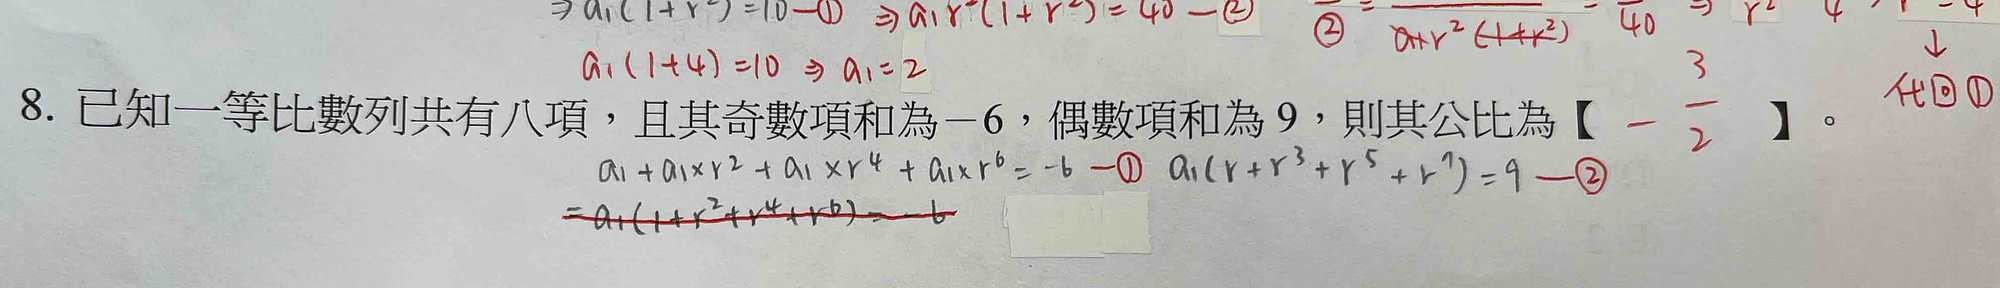 ⇒ a₁(1+r²)=10—① ⇒ a₁r²(1+r²)=40—② ② = a₁r²(1+r²) = 40 ⇒ r² 4
a₁(1+4)=10 ⇒ a₁=2 ↓
代回①
8. 已知一等比數列共有八項，且其奇數項和為－6，偶數項和為 9，則其公比為【 －3/2 】。
a₁+a₁×r²+a₁×r⁴+a₁×r⁶=-6—① a₁(r+r³+r⁵+r⁷)=9—②
=a₁(1+r²+r⁴+r⁶)=-6